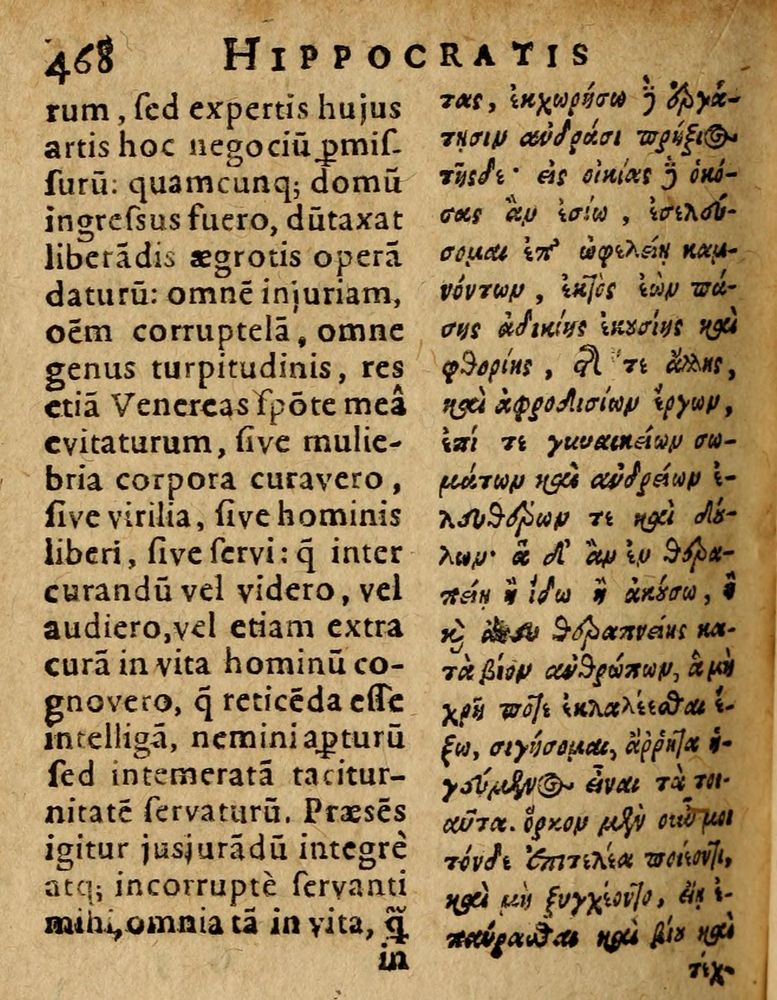 468 HIPPOCRATIS
rum, ſed expertis hujus
artis hoc negociū ꝑmiſ-
ſurū: quamcunq; domū
ingreſſus fuero, dūtaxat
liberādis ægrotis operā
daturū: omnē injuriam,
oēm corruptelā, omne
genus turpitudinis, res
etiā Venereas ſpōte meâ
evitaturum, ſive mulie-
bria corpora curavero,
ſive virilia, ſive hominis
liberi, ſive ſervi: q̃ inter
curandū vel videro, vel
audiero, vel etiam extra
curā in vita hominū co-
gnovero, q̃ reticēda eſſe
intelligā, nemini aꝑturū
ſed intemeratā tacitur-
nitatē ſervaturū. Præsēs
igitur jusjurādū integrè
atq; incorruptè ſervanti
mihi, omnia tā in vita, q̃
in
τας, ἐκχωρήσω ἢ ἐργά-
τησιν ἀνδράσι πρήξιος
τῆσδε· εἰς οἰκίας ἢ ὁκό-
σας ἂν ἐσίω, ἐσελεύ-
σομαι ἐπ' ὠφελείῃ καμ-
νόντων, ἐκτὸς ἐὼν πά-
σης ἀδικίης ἑκουσίης καὶ
φθορίης, τε ἄλλης,
καὶ ἀφροδισίων ἔργων,
ἐπί τε γυναικείων σω-
μάτων καὶ ἀνδρείων ἐ-
λευθέρων τε καὶ δού-
λων· ἃ δ' ἂν ἐν θερα-
πείῃ ἢ ἴδω ἢ ἀκούσω, ἢ
καὶ ἄνευ θεραπνείης κα-
τὰ βίον ἀνθρώπων, ἃ μὴ
χρή ποτε ἐκλαλέεσθαι ἔ-
ξω, σιγήσομαι, ἄῤῥητα ἡ-
γεύμενος εἶναι τὰ τοι-
αῦτα. ὅρκον μὲν οὖν μοι
τόνδε ἐπιτελέα ποιέοντι,
καὶ μὴ ξυγχέοντο, εἴη ἐ-
παύρασθαι καὶ βίου καὶ
τέχ-